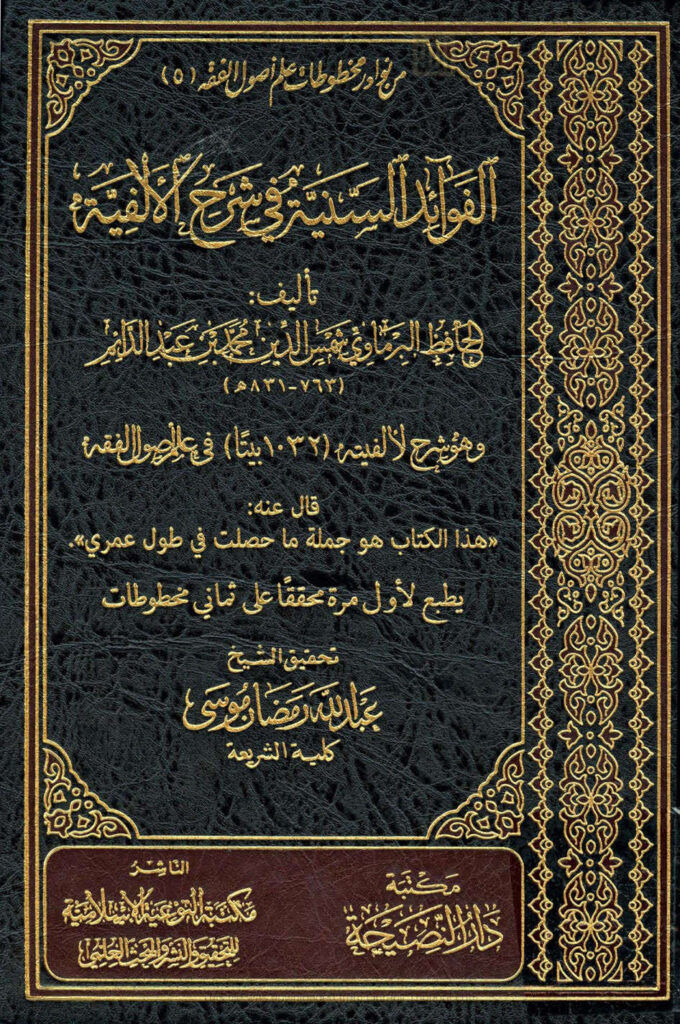 من نوادر مخطوطات علم أصول الفقه (٥)
الفَوَائِد السَّنِيَّة فِي شَرْح الأَلْفِيَّة
تأليف:
الحَافِظ البِرْمَاوِي شَمْس الدِّين مُحَمَّد بن عَبْد الدَّائِم
(٧٦٣-٨٣١هـ)
وهو شرح لألفيته (١٠٣٢ بيتًا) في علم أصول الفقه
قال عنه:
«هذا الكتاب هو جملة ما حصلت في طول عمري».
يطبع لأول مرة محققًا على ثماني مخطوطات
تحقيق الشيخ
عَبْد الله رَمَضَان مُوسَى
كلية الشريعة
مَكْتَبَة
دَارُ النَّصِيحَة
النَّاشِرُ
مَكتبَة التَّوعِيَة الإِسْلَامِيَّة
للتحقيق والنشر والبحث العلمي